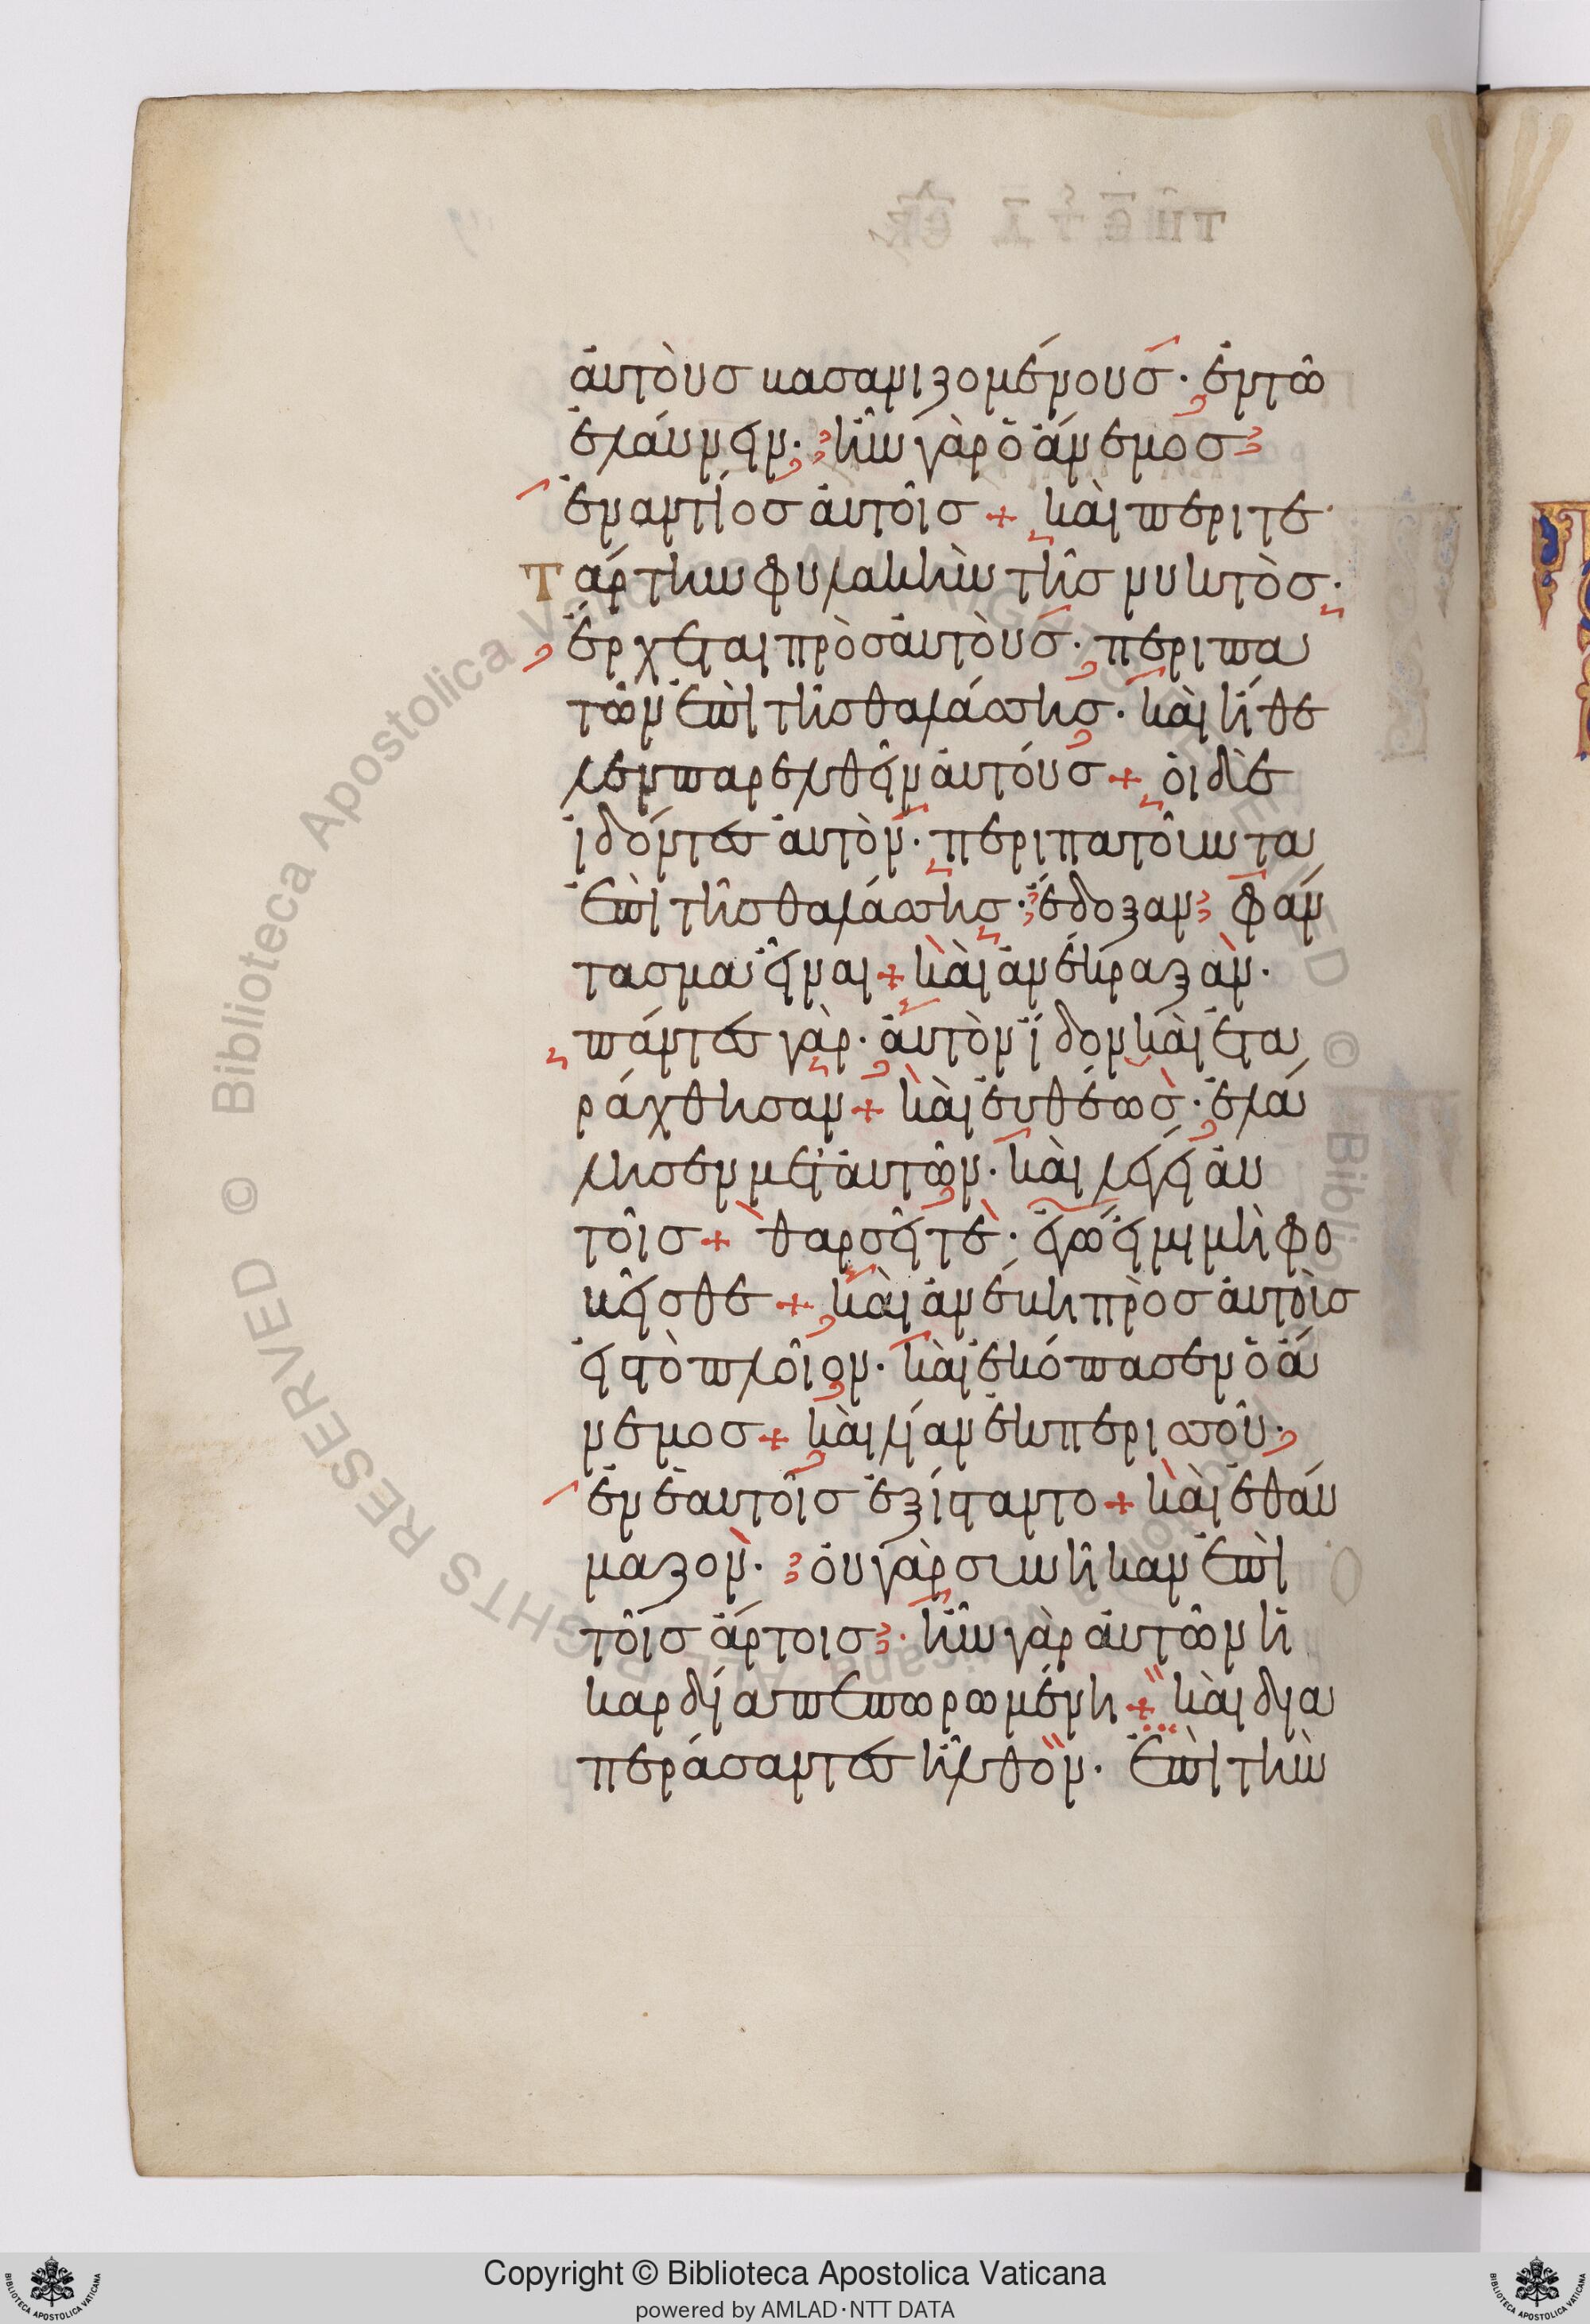 ἀυτοὺσ βασανιζομένουσ· ἐντῶ
ἐλάυνειν· ἦν γὰρ ὁ ἄνεμοσ
ἐναντίοσ ἀυτοῖσ + καὶ περιτε
Τάρτην φυλακὴν τῆσ νυκτὸσ·
ἔρχεται πρὸσ ἀυτοὺσ· περιπα
τῶν ἐπὶ τῆσ θαλάσσησ· καὶ ἤθε
λεν παρελθεῖν ἀυτούσ + ὁι δὲ
ἰδόντεσ ἀυτὸν· περιπατοῦντα
ἐπὶ τῆσ θαλάσσησ· ἔδοξαν φάν
τασμα εἶναι + καὶ ἀνέκραξαν·
πάντεσ γὰρ· ἀυτὸν ἴδον καὶ ἐτα
ράχθησαν + καὶ ἐυθέωσ· ἐλά
λησεν μετ' ἀυτῶν· καὶ λέγει ἀυ
τοῖσ + θαρσεῖτε· ἐγώ εἰμι μὴ φο
βεῖσθε + καὶ ἀνέβη πρὸσ ἀυτοὶσ
εἰσ τὸ πλοῖον· καὶ ἐκόπασεν ὁ ἄ
νεμοσ + καὶ λίαν ἐκπερισσοῦ·
ἐν ἑαυτοῖσ ἐξίσταντο + καὶ ἐθάυ
μαζον· ὀυ γὰρ συνῆκαν ἐπὶ
τοῖσ ἄρτοισ· ἦν γὰρ ἀυτῶν ἡ
καρδία πεπωρωμένη + καὶ δια
περάσαντεσ ἦλθον· ἐπὶ τὴν
© Biblioteca Apostolica Vaticana ALL RIGHTS RESERVED
Copyright © Biblioteca Apostolica Vaticana
powered by AMLAD·NTT DATA
BIBLIOTECA APOSTOLICA VATICANA
BIBLIOTECA APOSTOLICA VATICANA